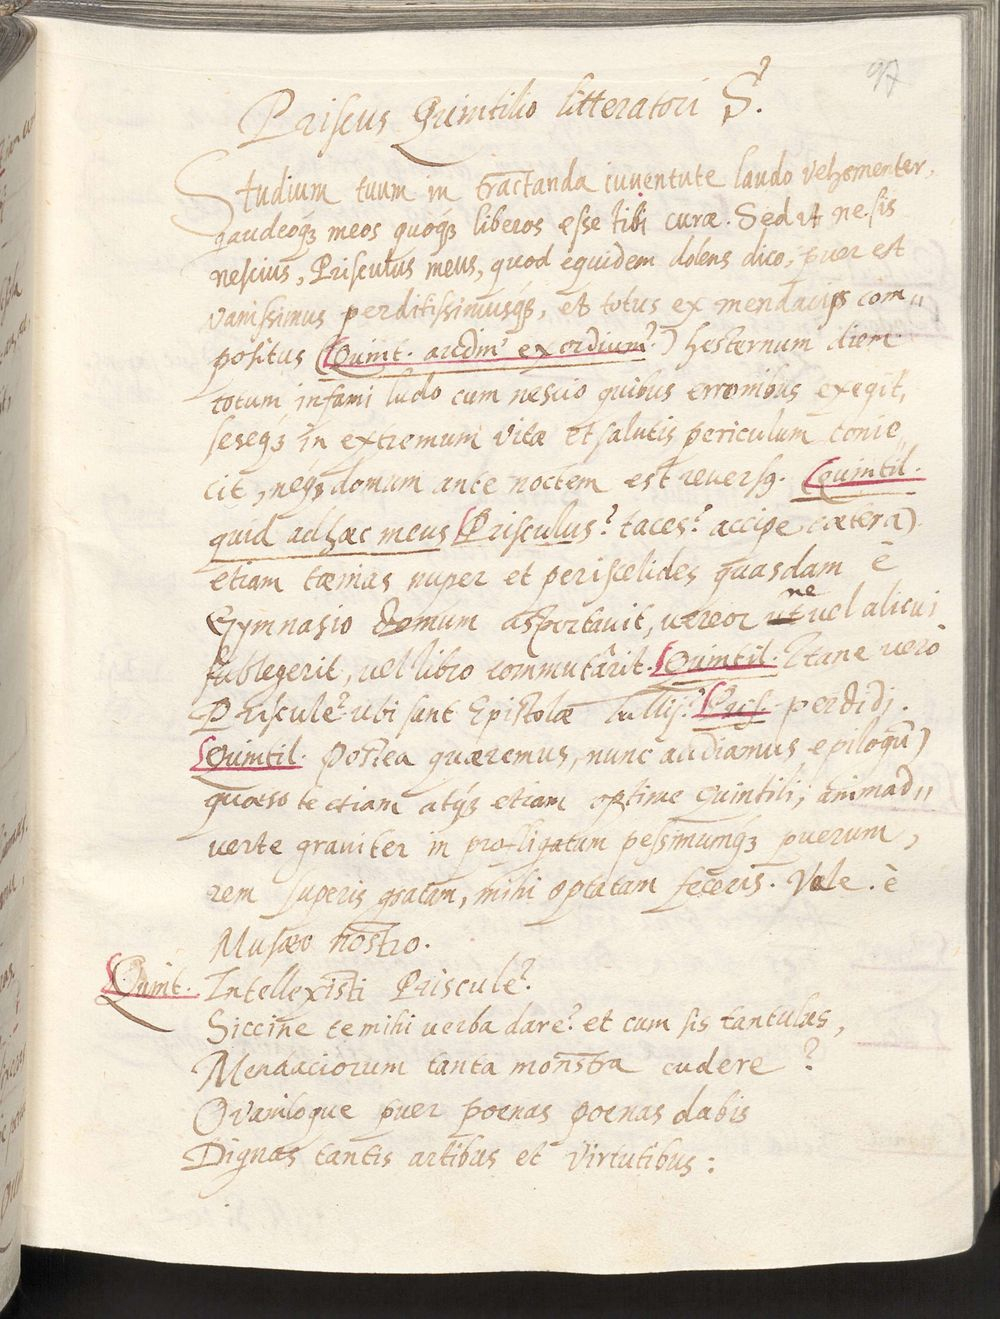 97
Priscus Quintilio litteratori S.
Studium tuum in tractanda iuventute laudo vehementer,
gaudeoq3 meos quoq3 liberos esse tibi curæ. Sed ut ne sis
nescius, Prisculus meus, quod equidem dolens dico, puer est
vanissimus perditissimusq3, et totus ex mendacijs com„
positus (Quint. audin' exordium?) hesternum diem
totum infami ludo cum nescio quibus erronibus exegit,
seseq3 in extremum vitæ et salutis periculum conie„
cit, neq3 domum ante noctem est reversq. (Quintil.
quid ad hæc meus Prisculus? taces? accipe cætera)
etiam tænias nuper et periscelides quasdam è
Gymnasio domum asportavit, vereor ne vel alicui
sublegerit, vel libro commutârit. (Quintil. Itane verò
Priscule? ubi sunt Epistolæ Tullij? Prisc. perdidi.
Quintil. Postea quæremus, nunc audiamus epilogũ)
quæso te etiam atq3 etiam optime Quintili; animad„
verte graviter in profligatum pessimumq3 puerum,
rem superis gratam, mihi optatam feceris. Vale. è
Musæo nostro.
Quint. Intellexisti Priscule?
Siccine te mihi verba dare? et cum sis tantulus,
Mendaciorum tanta monstra cudere?
O vaniloque puer poenas poenas dabis
Dignas tantis artibus et virtutibus: